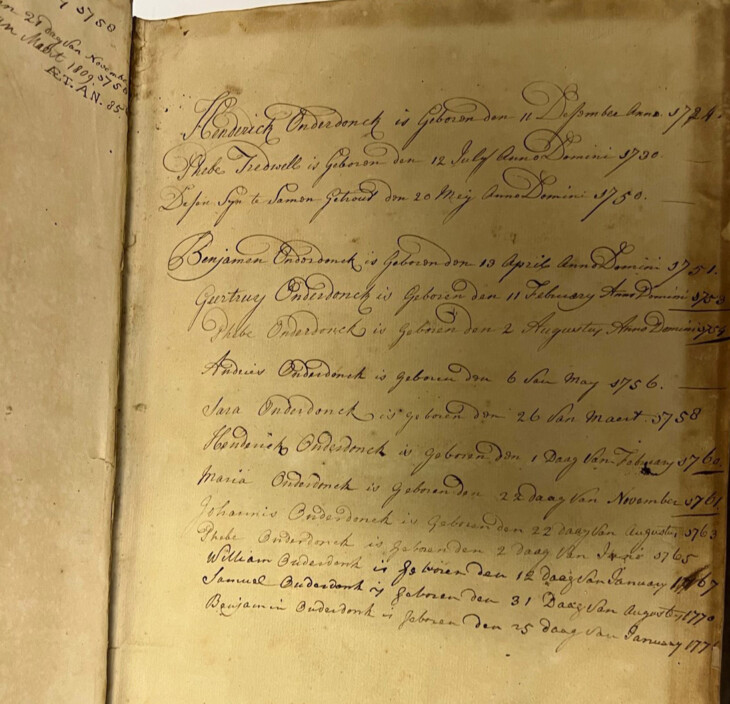 5758
en 21 daag van November
van Maart 1809
ÆT. AN. 85
Hendrick Onderdonck is Geboren den 11 Desember Anno 1724
Phebe Tredwell is Geboren den 12 July Anno Domini 1730
Desen Syn te Samen Getrout den 20 Mey Anno Domini 1750.
Benjamen Onderdonck is Geboren den 13 April Anno Domini 1751.
Gurtruy Onderdonck is Geboren den 11 February Anno Domini 1753
Phebe Onderdonck is geboren den 2 Augustus Anno Domini 1754
Andries Onderdonck is geboren den 6 van May 1756.
Sara Onderdonck is geboren den 26 van Maart 1758
Henderick Onderdonck is geboren den 1 Daag van February 1760
Maria Onderdonck is geboren den 22 daag van November 1761
Johannis Onderdonck is geboren den 22 daag van Augustus 1763
Phebe Onderdonck is geboren den 2 daag van 1765
William Onderdonk is geboren den 12 Daag van January 1767
Samuel Onderdonk is geboren den 31 Daag van Augustus 1770
Benjamin Onderdonk is Geboren den 25 daag van January 177